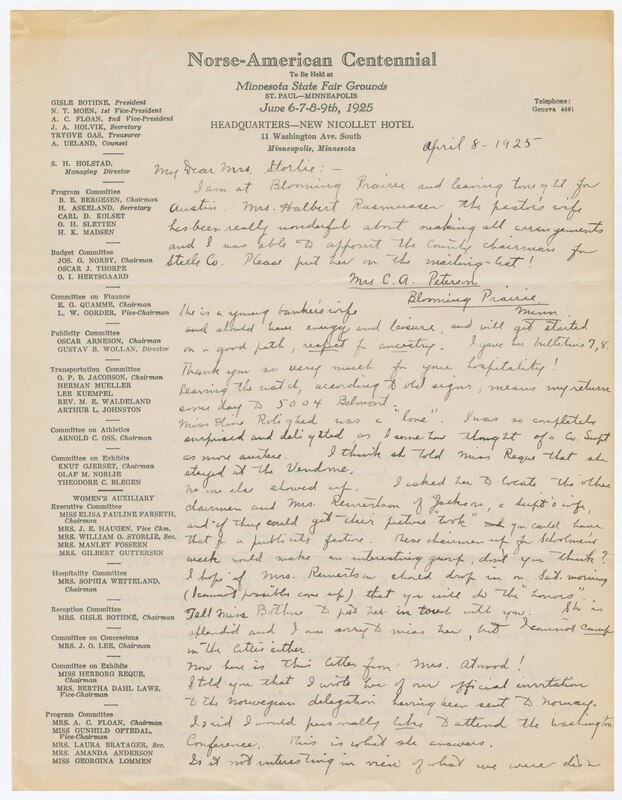 Norse-American Centennial
To Be Held at
Minnesota State Fair Grounds
ST. PAUL—MINNEAPOLIS
June 6-7-8-9th, 1925
HEADQUARTERS—NEW NICOLLET HOTEL
11 Washington Ave. South
Minneapolis, Minnesota
Telephone:
Geneva 4061
GISLE BOTHNE, President
N. T. MOEN, 1st Vice-President
A. C. FLOAN, 2nd Vice-President
J. A. HOLVIK, Secretary
TRYGVE OAS, Treasurer
A. UELAND, Counsel
S. H. HOLSTAD,
Managing Director
Program Committee
B. E. BERGESEN, Chairman
H. ASKELAND, Secretary
CARL D. KOLSET
O. H. SLETTEN
H. K. MADSEN
Budget Committee
JOS. G. NORBY, Chairman
OSCAR J. THORPE
O. I. HERTSGAARD
Committee on Finance
E. G. QUAMME, Chairman
L. W. GORDER, Vice-Chairman
Publicity Committee
OSCAR ARNESON, Chairman
GUSTAV B. WOLLAN, Director
Transportation Committee
O. P. B. JACOBSON, Chairman
HERMAN MUELLER
LEE KUEMPEL
REV. M. E. WALDELAND
ARTHUR L. JOHNSTON
Committee on Athletics
ARNOLD C. OSS, Chairman
Committee on Exhibits
KNUT GJERSET, Chairman
OLAF M. NORLIE
THEODORE C. BLEGEN
WOMEN'S AUXILIARY
Executive Committee
MISS ELISA PAULINE FARSETH,
Chairman
MRS. J. E. HAUGEN, Vice Chm.
MRS. WILLIAM O. STORLIE, Sec.
MRS. MANLEY FOSSEEN
MRS. GILBERT GUTTERSEN
Hospitality Committee
MRS. SOPHIA WETTELAND,
Chairman
Reception Committee
MRS. GISLE BOTHNE, Chairman
Committee on Concessions
MRS. J. O. LEE, Chairman
Committee on Exhibits
MISS HERBORG REQUE,
Chairman
MRS. BERTHA DAHL LAWS,
Vice-Chairman
Program Committee
MRS. A. C. FLOAN, Chairman
MISS GUNHILD OFTEDAL,
Vice-Chairman
MRS. LAURA BRATAGER, Sec.
MRS. AMANDA ANDERSON
MISS GEORGINA LOMMEN
April 8 - 1925
My Dear Mrs. Storlie: -
I am at Blooming Prairie and leaving tonight for
Austin. Mrs. Halbert Rasmussen the pastor's wife
has been really wonderful about making all arrangements
and I was able to appoint the County chairman for
Steele Co. Please put her on the mailing-list!
Mrs C. A. Peterson
Blooming Prairie
Minn.
She is a young banker's wife
and should have energy and leisure, and will get started
on a good path, respect for ancestry. I gave her bulletins 7, 8.
Thank you so very much for your hospitality!
Leaving the watch, according to old signs, means my return
some day to 5004 Belmont.
Miss Oline was a "love". I was so completely
surprised and delighted as I somehow thought of a Co. Supt
as more austere. I think she told Miss Reque that she
stayed at the Vendome.
No one else showed up. I asked her to locate the other
chairmen and Mrs. of Jackson, a supt's wife,
and if they could get their picture "took" you could have
that for a publicity feature. These chairmen up for Schoolmens
week would make an interesting group, don't you think?
I hope if Mrs. should drop in on Sat. morning
(I cannot possibly come up) that you will do the "honors".
Tell Miss Bothne to put her in touch with you. She is
splendid and I am sorry to miss her, but I cannot camp
in the cities either.
Now here is this letter from Mrs. Atwood!
I told you that I wrote her of our official invitation
to the Norwegian delegation having been sent to Norway.
I said I would personally like to attend the Washington
Conference. This is what she answers.
Is it not interesting in view of what we were